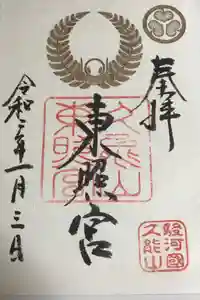 奉拝
東照宮
久能山
東照宮
駿河國
久能山
令和二年一月三日